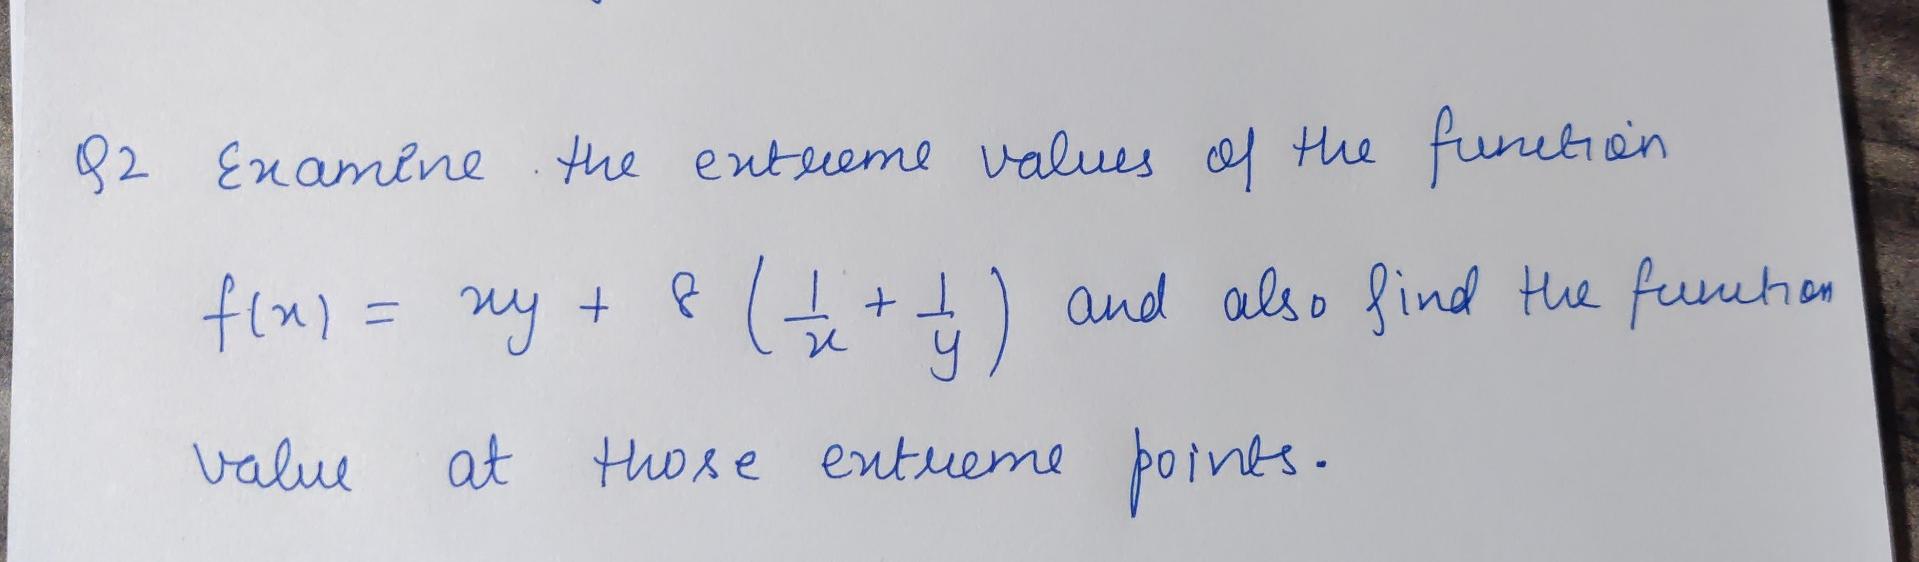 Q2 Examine the extreme values of the function
f(x) = xy + 8 (1/x + 1/y) and also find the function
value at those extreme points.